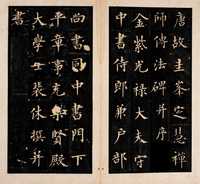 唐故圭峯定慧禪
師傳法碑并序
金紫光祿大夫守
中書侍郎兼戶部
尚書同中書門下
平章事充集賢殿
大學士裴休撰并
書